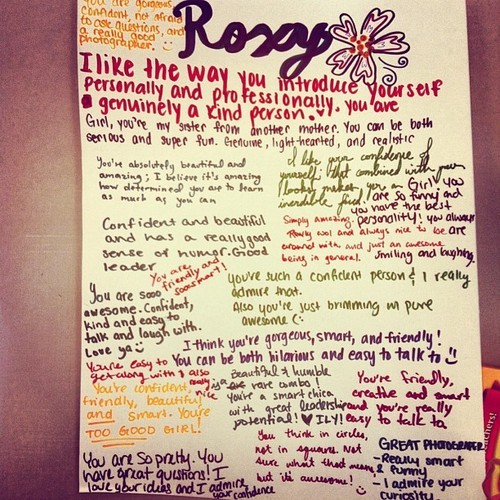 You are gorgeous,
confident, not afraid
to ask questions, and
a really good
photographer. :)
Rosay
I like the way you introduce yourself
personally and professionally. you are
a genuinely a kind person.
Girl, you're my sister from another mother. You can be both
serious and super fun. Genuine, light-hearted, and realistic
You're absolutely beautiful and
amazing; I believe it's amazing
how determined you are to learn
as much as you can
I like your confidence of
yourself; that combined with your
looks makes you an
incredible find!
Girl you
are so funny and
you have the best
personality! you always
are
smiling and laughing.
Simply amazing.
Really cool and always nice to be
around with and just an awesome
being in general.
Confident and beautiful
and has a really good
sense of humor. Good
leader
You are friendly and
sooo smart!
You're such a confident person & I really
admire that.
Also you're just brimming in pure
awesome (:
You are sooo
awesome. Confident,
kind and easy to
talk and laugh with.
Love ya :)
I think you're gorgeous, smart, and friendly!
You can be both hilarious and easy to talk to :)
You're easy to
get along with & also
really
nice
You're confident,
friendly, beautiful
and smart. You're
TOO GOOD GIRL!
Beautiful & humble
are rare combo!
You're a smart chica
with great leadership
potential! ♥ ILY!
You're friendly,
creative and smart
and you're really
easy to talk to.
You think in circles,
not in square. Not
sure what that means
but it's awesome!
GREAT PHOTOGRAPHER
- Really smart
& funny
- I admire your
curiosity
You are so pretty. You
have great questions! I
love your ideas and I admire
your confidence